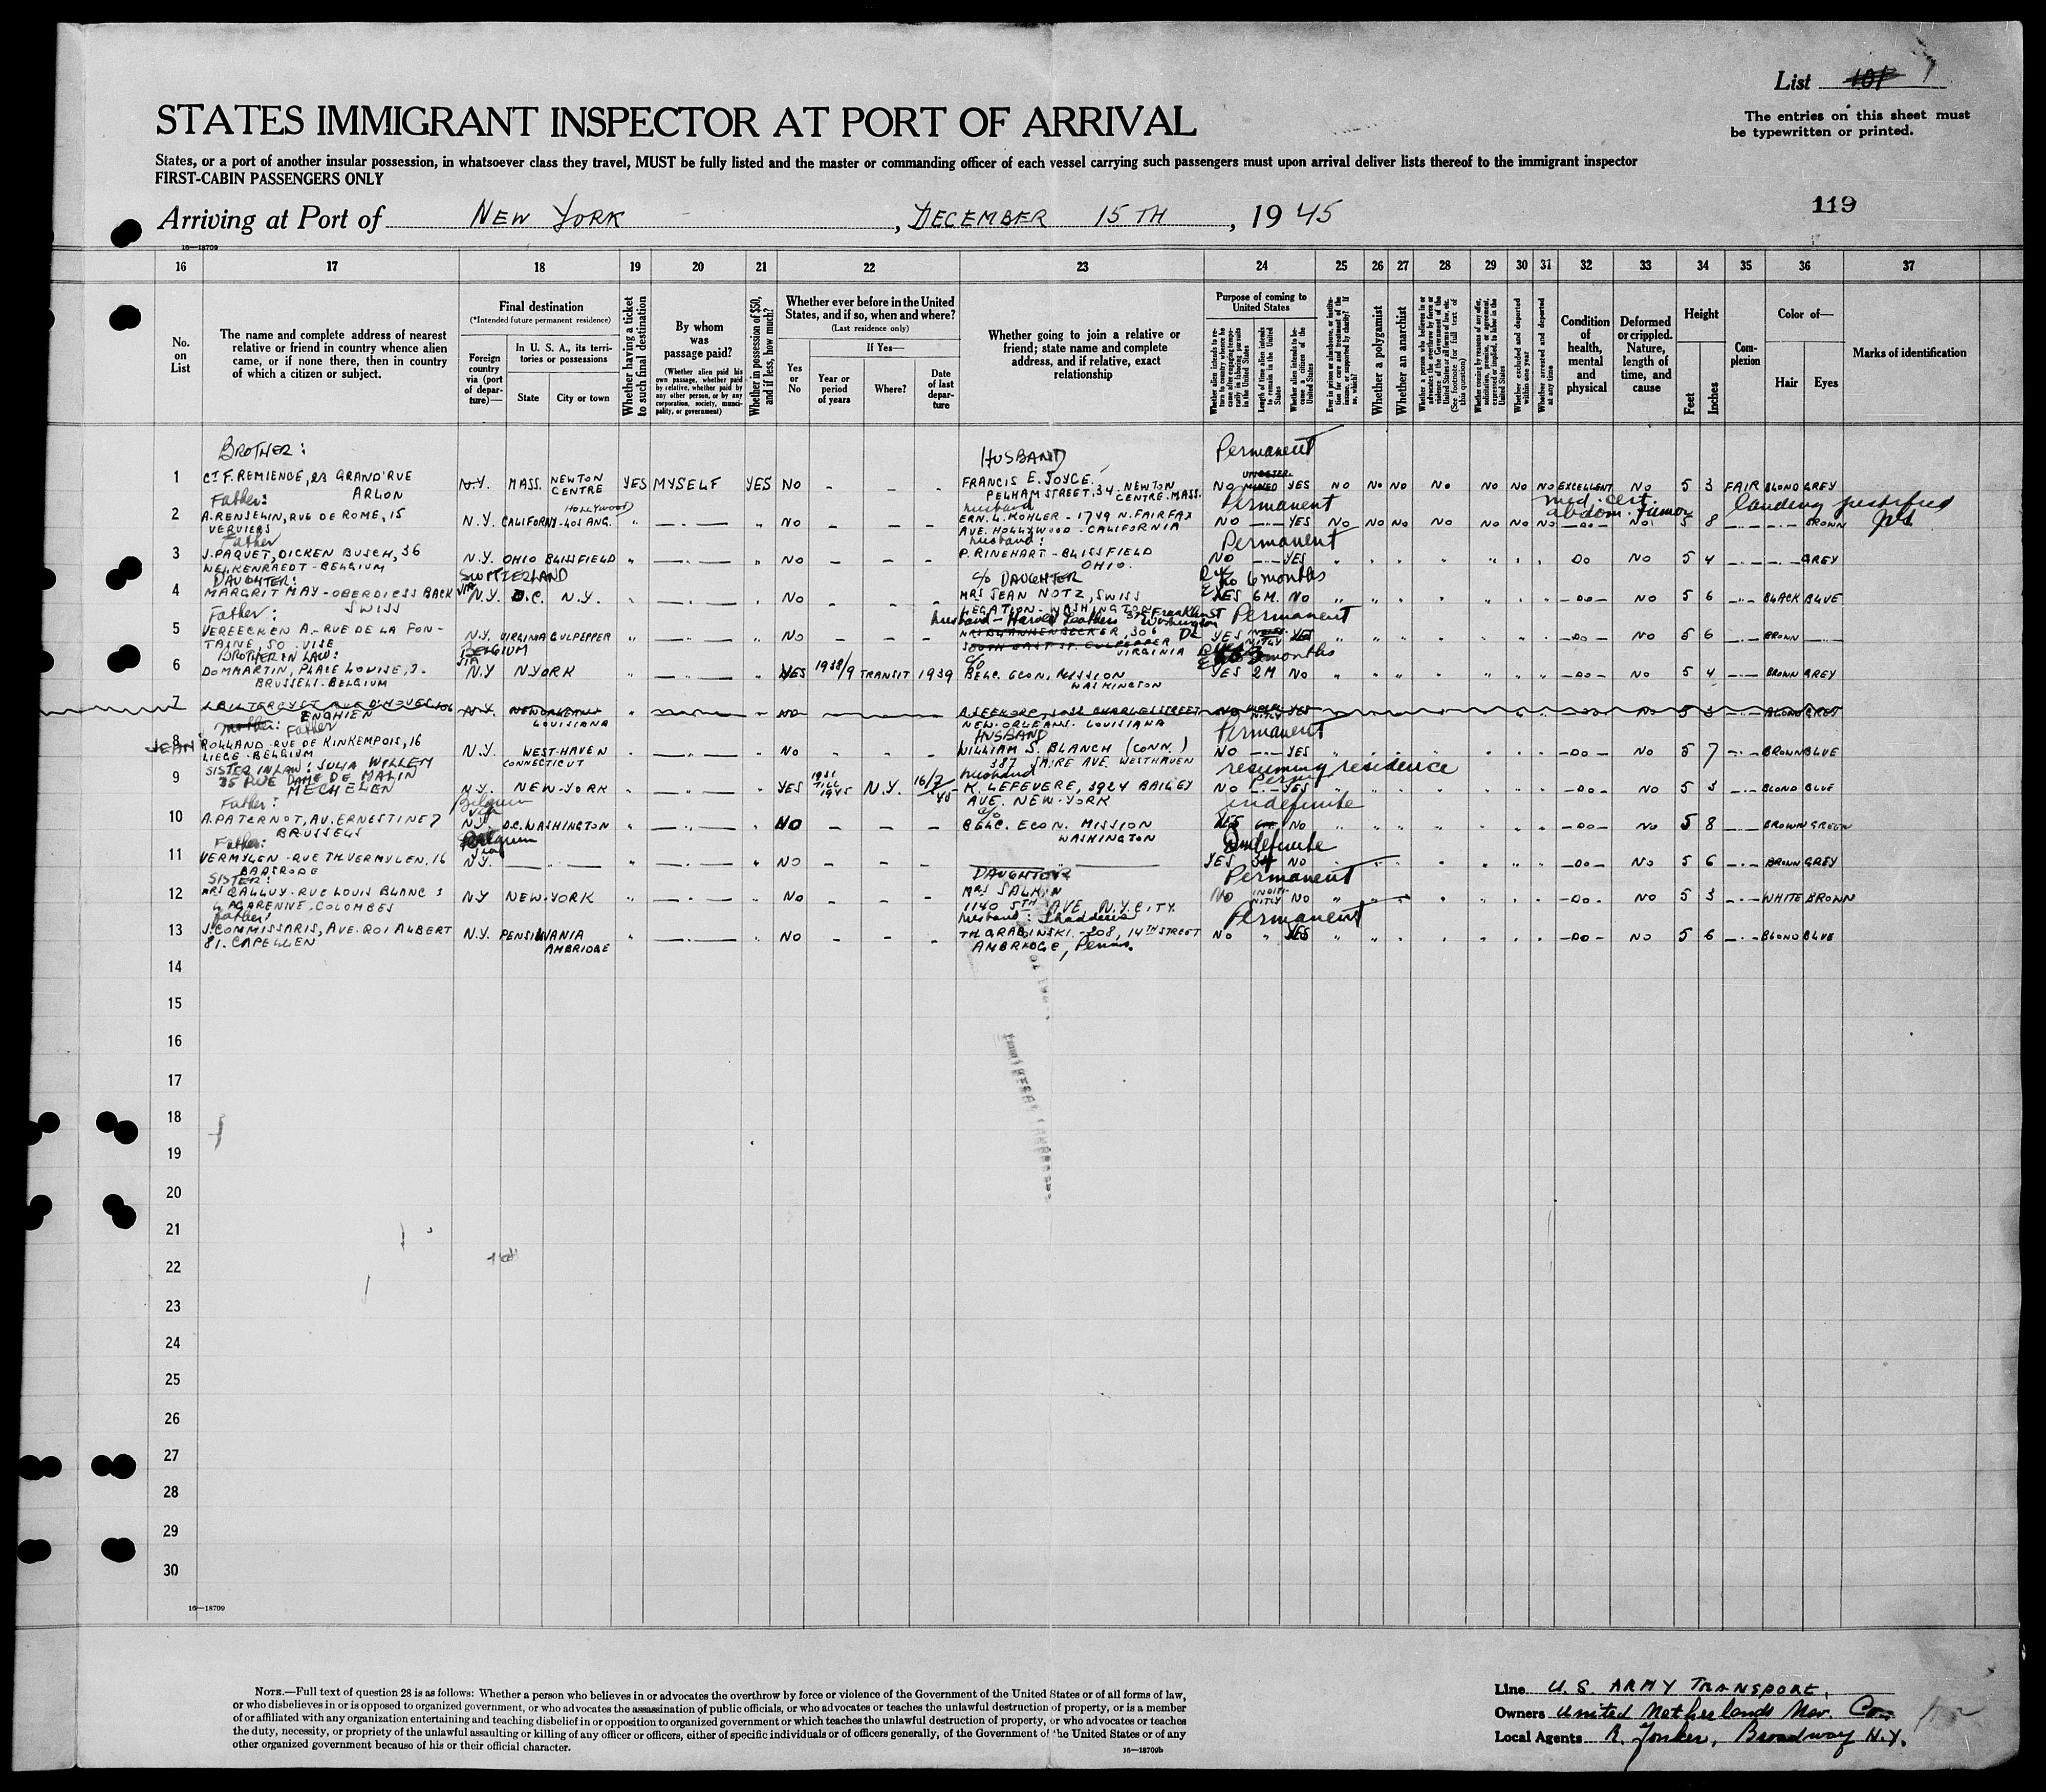 List 101 1
STATES IMMIGRANT INSPECTOR AT PORT OF ARRIVAL
The entries on this sheet must
be typewritten or printed.
States, or a port of another insular possession, in whatsoever class they travel, MUST be fully listed and the master or commanding officer of each vessel carrying such passengers must upon arrival deliver lists thereof to the immigrant inspector
FIRST-CABIN PASSENGERS ONLY
119
Arriving at Port of NEW YORK, DECEMBER 15TH, 1945
16—18709
16 17 18 19 20 21 22 23 24 25 26 27 28 29 30 31 32 33 34 35 36 37
No. on List
The name and complete address of nearest relative or friend in country whence alien came, or if none there, then in country of which a citizen or subject.
Final destination
(*Intended future permanent residence)
Foreign country via (port of departure)—
In U. S. A., its territories or possessions
State
City or town
Whether having a ticket to such final destination
By whom was passage paid?
(Whether alien paid his own passage, whether paid by relative, whether paid by any other person, or by any corporation, society, municipality, or government)
Whether in possession of $50, and if less, how much?
Whether ever before in the United States, and if so, when and where?
(Last residence only)
Yes or No
If Yes—
Year or period of years
Where?
Date of last departure
Whether going to join a relative or friend; state name and complete address, and if relative, exact relationship
Purpose of coming to United States
Whether alien intends to return to country whence he came after engaging temporarily in laboring pursuits in the United States
Length of time alien intends to remain in the United States
Whether alien intends to become a citizen of the United States
Ever in prison or almshouse, or institution for care and treatment of the insane, or supported by charity? If so, which?
Whether a polygamist
Whether an anarchist
Whether a person who believes in or advocates the overthrow by force or violence of the Government of the United States or all forms of law, etc. (See footnote for full text of this question)
Whether coming by reason of any offer, solicitation, promise, or agreement, expressed or implied, to labor in the United States
Whether excluded and deported within one year
Whether arrested and deported at any time
Condition of health, mental and physical
Deformed or crippled. Nature, length of time, and cause
Height
Feet
Inches
Complexion
Color of—
Hair
Eyes
Marks of identification
BROTHER: HUSBAND Permanent
1 CT F. REMIENCE, 23 GRAND'RUE ARLON N.Y. MASS. NEWTON CENTRE YES MYSELF YES NO - - - FRANCIS E. JOYCE. PELHAM STREET, 34 NEWTON CENTRE. MASS. NO YES NO NO NO NO NO NO NO EXCELLENT NO 5 3 FAIR BLOND GREY
Father: husband Permanent med. cert. abdom. tumor landing justified
2 A. RENSELIN, RUE DE ROME, 15 VERVIERS N.Y. CALIFORNY-LOS ANG. HOLLYWOOD " —"— " NO - - - ERN. L. KOHLER - 1749 N. FAIRFAX AVE. HOLLYWOOD - CALIFORNIA NO —"— YES NO NO NO NO NO NO NO —DO— NO 5 8 —"— BROWN
Father husband: Permanent
3 J. PAQUET, DICKEN BUSCH, 36 WELKENRAEDT - BELGIUM N.Y. OHIO BLISSFIELD " —"— " NO - - - P. RINEHART - BLISSFIELD OHIO. NO —"— YES DO NO 5 4 —"— GREY
DAUGHTER: SWITZERLAND VIA C/O DAUGHTER 6 months
4 MARGRIT MAY - OBERDIESSBACH SWISS N.Y. D.C. N.Y. " —"— NO - - - MRS JEAN NOTZ, SWISS LEGATION - WASHINGTON YES 6M. NO —DO— NO 5 6 —"— BLACK BLUE
Father: husband - Harold Leathers 375 Franklin St Washington Permanent
5 VEREECKEN A. - RUE DE LA FONTAINE, 50. VISE N.Y. VIRGINIA CULPEPPER " —"— " NO - - - 306 SOUTH EAST ST. CULPEPPER VIRGINIA YES YES —DO— NO 5 6 —"— BROWN —"—
BROTHER IN LAW: BELGIUM VIA C/O months
6 DOMMARTIN, PLACE LOUISE, 3. BRUSSELS. BELGIUM N.Y N.YORK " —"— " YES 1938/9 TRANSIT 1939 BELG. ECON. MISSION WASHINGTON YES 2M NO —DO— NO 5 4 —"— BROWN GREY
7 ENGHIEN N.Y. NEW ORLEANS LOUISIANA " —"— " NO CHARLES STREET NEW-ORLEANS. LOUISIANA NO YES —DO— NO 5 3 —"— BLOND GREY
mother: Father HUSBAND Permanent
8 JEAN ROLLAND RUE DE KINKEMPOIS, 16 LIEGE - BELGIUM N.Y. WEST-HAVEN CONNECTICUT " —"— " NO - - - WILLIAM S. BLANCH (CONN.) 387 AVE. WESTHAVEN NO —"— YES —DO— NO 5 7 —"— BROWN BLUE
SISTER IN LAW: JULIA WILLEM husband resuming residence
9 35 RUE DAME DE MALIN MECHELEN N.Y. NEW-YORK " —"— " YES 1931 TILL 1945 N.Y. 16/7/45 K. LEFEVERE, 3924 BAILEY AVE. NEW-YORK NO —"— YES —DO— NO 5 3 —"— BLOND BLUE
Father: Belgium via C/o indefinite
10 A. PATERNOT, AV. ERNESTINE 7 BRUSSELS N.Y. D.C. WASHINGTON " —"— " NO - - - BELG. ECON. MISSION WASHINGTON YES NO —DO— NO 5 8 —"— BROWN GREEN
Father: Belgium via Indefinite
11 VERMYLEN - RUE TH. VERMYLEN. 16 BAASRODE N.Y. —"— " —"— " NO - - - —"— YES NO —DO— NO 5 6 —"— BROWN GREY
SISTER: DAUGHTER Permanent
12 MRS GALLUY - RUE LOUIS BLANC LAGARENNE - COLOMBES N.Y NEW-YORK " —"— " NO - - - MRS SALKIN 1140 5TH AVE. N.Y. CITY. NO INDIFINITLY NO —DO— NO 5 3 —"— WHITE BROWN
Father: husband: Thaddeus Permanent
13 J. COMMISSARIS, AVE. ROI ALBERT 81. CAPELLEN N.Y. PENSILVANIA AMBRIDGE " —"— " NO - - - TH. GRABINSKI - 208, 14TH STREET AMBRIDGE, Penna. NO " YES —DO— NO 5 6 —"— BLOND BLUE
14
15
16
17
18
19
20
21
22
23
24
25
26
27
28
29
30
16—18709
NOTE.—Full text of question 28 is as follows: Whether a person who believes in or advocates the overthrow by force or violence of the Government of the United States or of all forms of law,
or who disbelieves in or is opposed to organized government, or who advocates the assassination of public officials, or who advocates or teaches the unlawful destruction of property, or is a member
of or affiliated with any organization entertaining and teaching disbelief in or opposition to organized government or which teaches the unlawful destruction of property, or who advocates or teaches
the duty, necessity, or propriety of the unlawful assaulting or killing of any officer or officers, either of specific individuals or of officers generally, of the Government of the United States or of any
other organized government because of his or their official character.
16—18709b
Line U.S. ARMY TRANSPORT.
Owners United Netherlands Nav. Co.
Local Agents R. Yonker, Broadway N.Y.